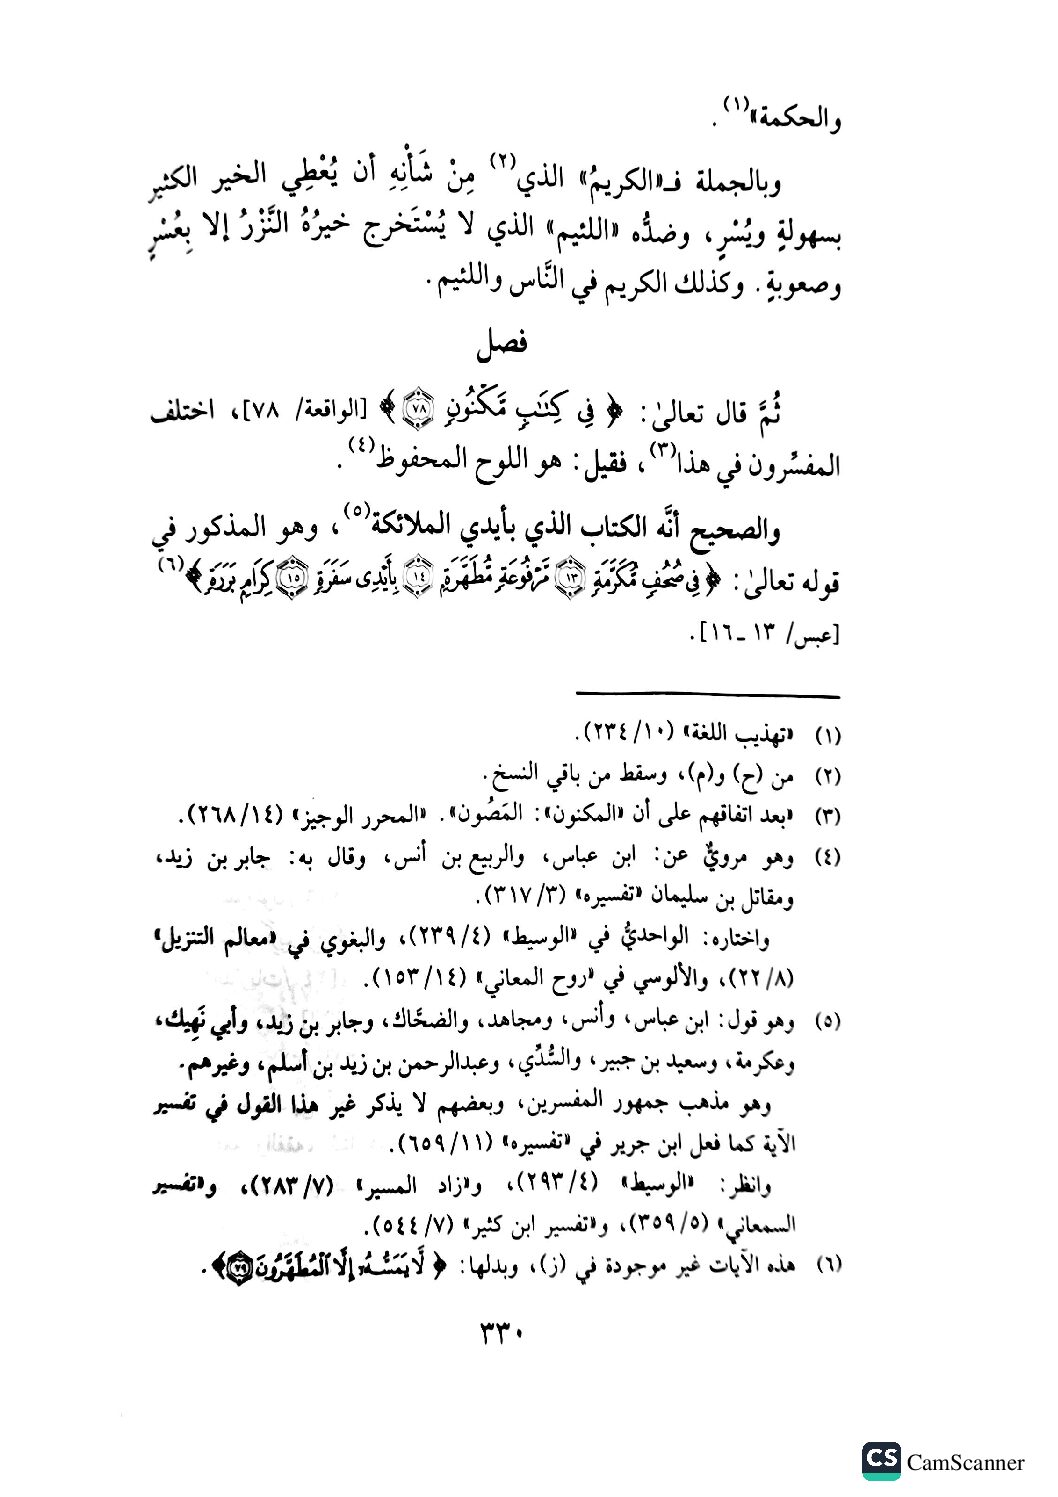 والحكمة»(١).
وبالجملة فـ«الكريمُ» الذي(٢) مِنْ شَأْنِهِ أن يُعْطِي الخير الكثير
بسهولةٍ ويُسْرٍ، وضدُّه «اللئيم» الذي لا يُسْتَخرج خيرُهُ النَّزْرُ إلا بِعُسْرٍ
وصعوبةٍ. وكذلك الكريم في النَّاس واللئيم.
فصل
ثُمَّ قال تعالىٰ: ﴿فِي كِتَٰبٍ مَّكْنُونٍ ٧٨﴾ [الواقعة/ ٧٨]، اختلف
المفسِّرون في هذا(٣)، فقيل: هو اللوح المحفوظ(٤).
والصحيح أنَّه الكتاب الذي بأيدي الملائكة(٥)، وهو المذكور في
قوله تعالىٰ: ﴿فِي صُحُفٍ مُّكَرَّمَةٍ ١٣ مَّرْفُوعَةٍ مُّطَهَّرَةٍ ١٤ بِأَيْدِي سَفَرَةٍ ١٥ كِرَامٍ بَرَرَةٍ﴾(٦)
[عبس/ ١٣ ـ ١٦].
(١) «تهذيب اللغة» (١٠/ ٢٣٤).
(٢) من (ح) و(م)، وسقط من باقي النسخ.
(٣) «بعد اتفاقهم على أن «المكنون»: المَصُون». «المحرر الوجيز» (١٤/ ٢٦٨).
(٤) وهو مرويٌّ عن: ابن عباس، والربيع بن أنس، وقال به: جابر بن زيد،
ومقاتل بن سليمان «تفسيره» (٣/ ٣١٧).
واختاره: الواحديُّ في «الوسيط» (٤/ ٢٣٩)، والبغوي في «معالم التنزيل»
(٨/ ٢٢)، والألوسي في «روح المعاني» (١٤/ ١٥٣).
(٥) وهو قول: ابن عباس، وأنس، ومجاهد، والضحَّاك، وجابر بن زيد، وأبي نَهِيك،
وعكرمة، وسعيد بن جبير، والسُّدِّي، وعبدالرحمن بن زيد بن أسلم، وغيرهم.
وهو مذهب جمهور المفسرين، وبعضهم لا يذكر غير هذا القول في تفسير
الآية كما فعل ابن جرير في «تفسيره» (١١/ ٦٥٩).
وانظر: «الوسيط» (٤/ ٢٩٣)، و«زاد المسير» (٧/ ٢٨٣)، و«تفسير
السمعاني» (٥/ ٣٥٩)، و«تفسير ابن كثير» (٧/ ٥٤٤).
(٦) هذه الآيات غير موجودة في (ز)، وبدلها: ﴿لَّا يَمَسُّهُۥ إِلَّا ٱلْمُطَهَّرُونَ ٧٩﴾.
٣٣٠
CS CamScanner